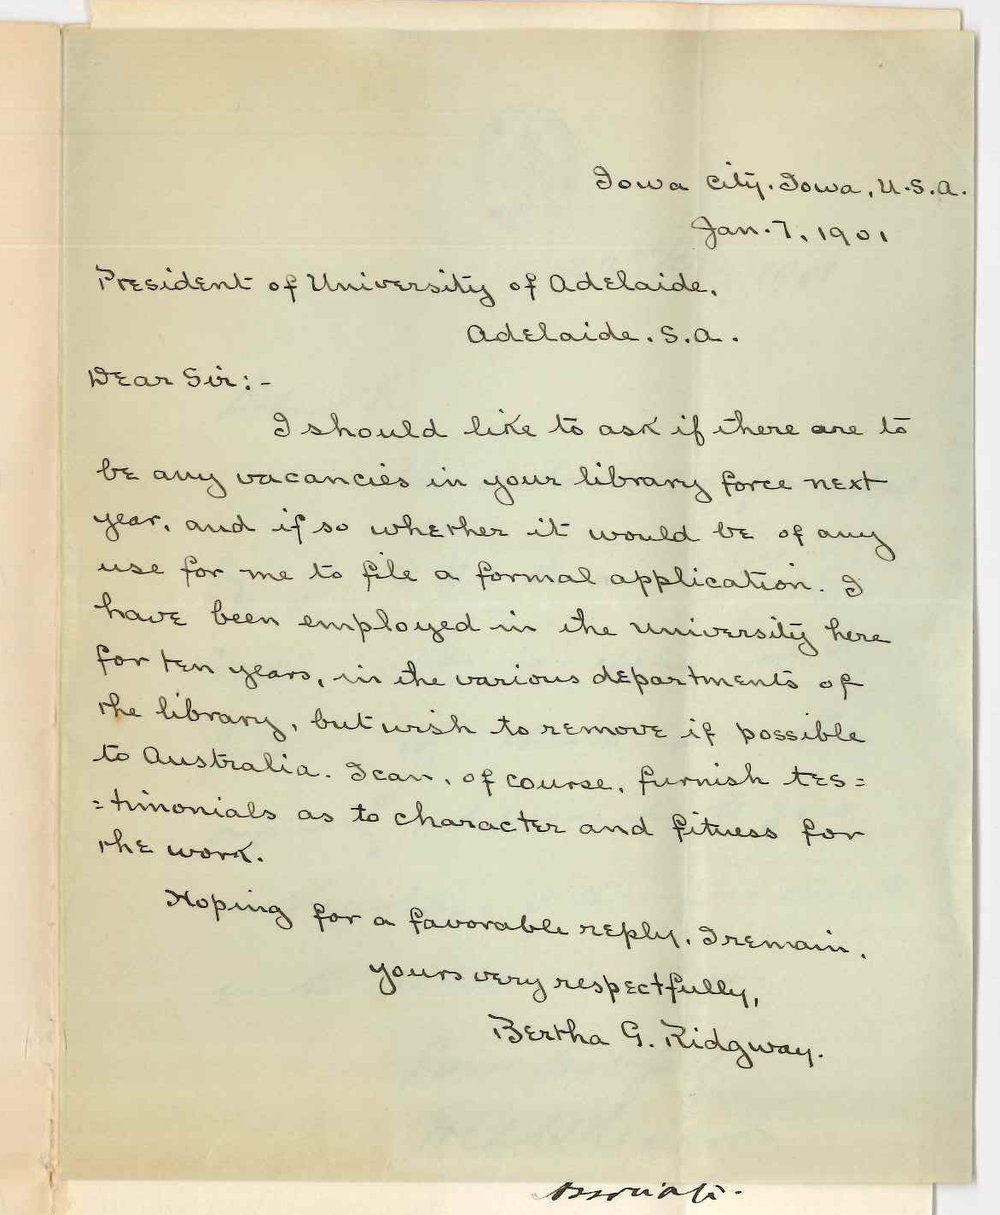 Iowa City. Iowa, U.S.A.
Jan. 7, 1901
President of University of Adelaide,
Adelaide. S.A.
Dear Sir:-
I should like to ask if there are to
be any vacancies in your library force next
year, and if so whether it would be of any
use for me to file a formal application. I
have been employed in the University here
for ten years, in the various departments of
the library, but wish to remove if possible
to Australia. I can, of course, furnish tes=
=timonials as to character and fitness for
the work.
Hoping for a favorable reply, I remain,
yours very respectfully,
Bertha G. Ridgway.